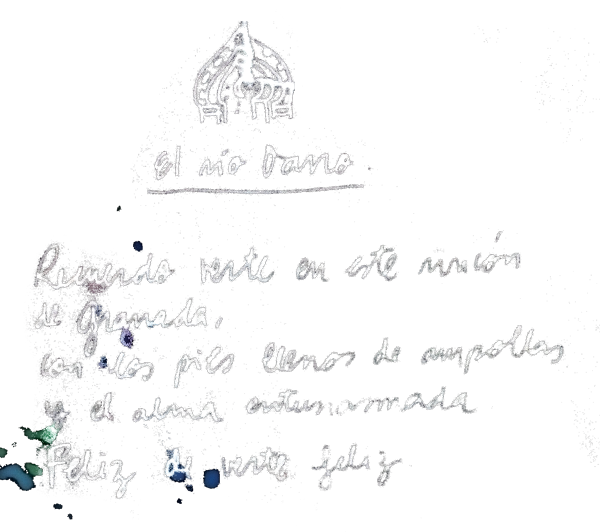 El río Darro.
Recuerdo verte en este rincón
de Granada,
con los pies llenos de ampollas
y el alma entusiasmada
Feliz de verte feliz